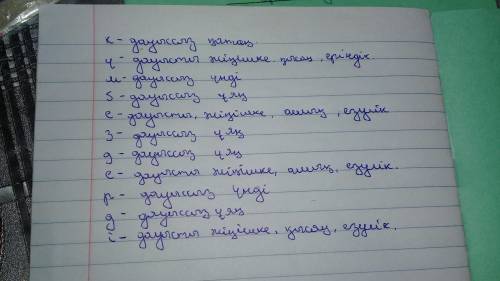 к - дауыссыз қатаң.
ү - дауысты жіңішке қысаң, еріндік.
м - дауыссыз үнді
б - дауыссыз ұяң
е - дауысты, жіңішке, ашық, езулік
з - дауыссыз ұяң
д - дауыссыз ұяң
е - дауысты жіңішке, ашық, езулік.
р - дауыссыз үнді
д - дауыссыз ұяң
і - дауысты жіңішке, қысаң, езулік.